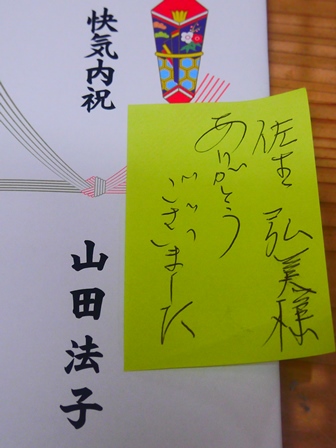 快気内祝
山田法子
佐生 弘美様
ありがとう
ございました